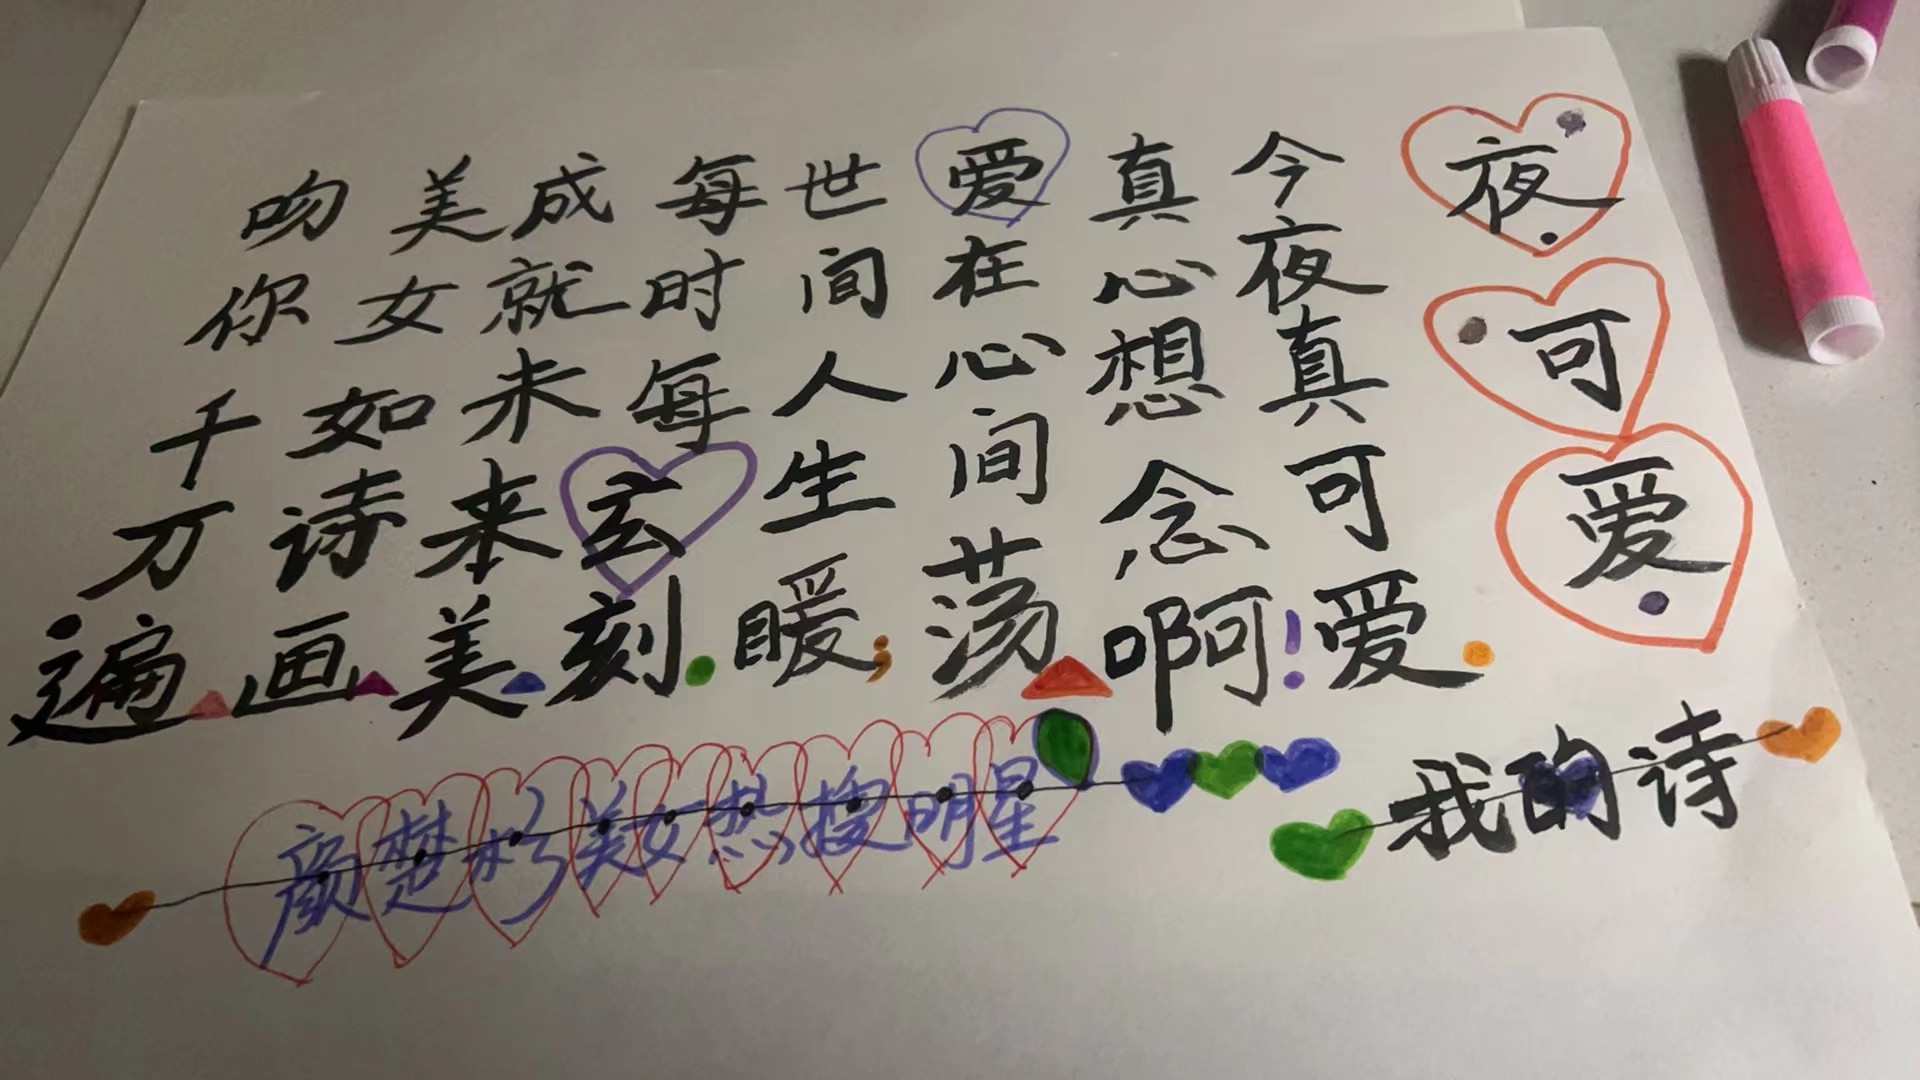 夜可爱
今夜真可爱.
真心想念啊!
爱在心间荡
世间人生暖;
每时每玄刻.
成就未来美
美女如诗画
吻你千万遍
我的诗
颜楚美女热搜明星